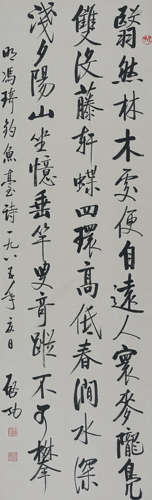 翳然林木處便自遠人寰麥隴鳧
雙沒藤軒蝶四環高低春澗水深
淺夕陽山坐憶垂竿叟奇蹤不可攀
明馮琦釣魚臺詩一九八五年夏日 啟功